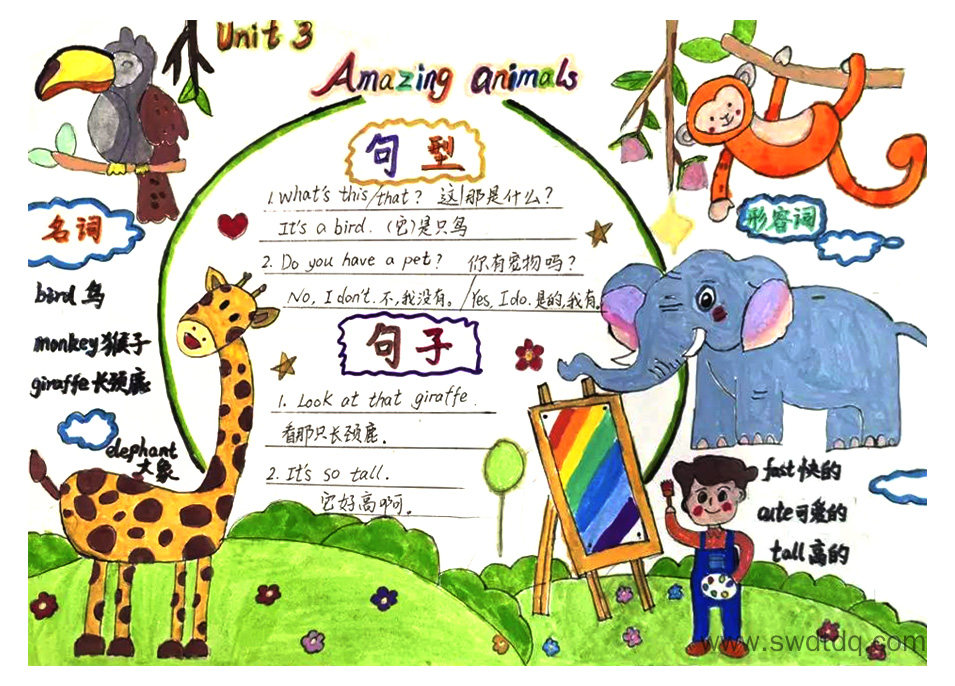 Unit 3
Amazing animals
句型
1. What's this/that? 这/那是什么?
It's a bird. (它)是只鸟
2. Do you have a pet? 你有宠物吗?
No, I don't. 不,我没有。/Yes, I do. 是的,我有。
句子
1. Look at that giraffe.
看那只长颈鹿。
2. It's so tall.
它好高啊。
名词
bird 鸟
monkey 猴子
giraffe 长颈鹿
elephant
大象
形容词
fast 快的
cute 可爱的
tall 高的
www.swdtdq.com